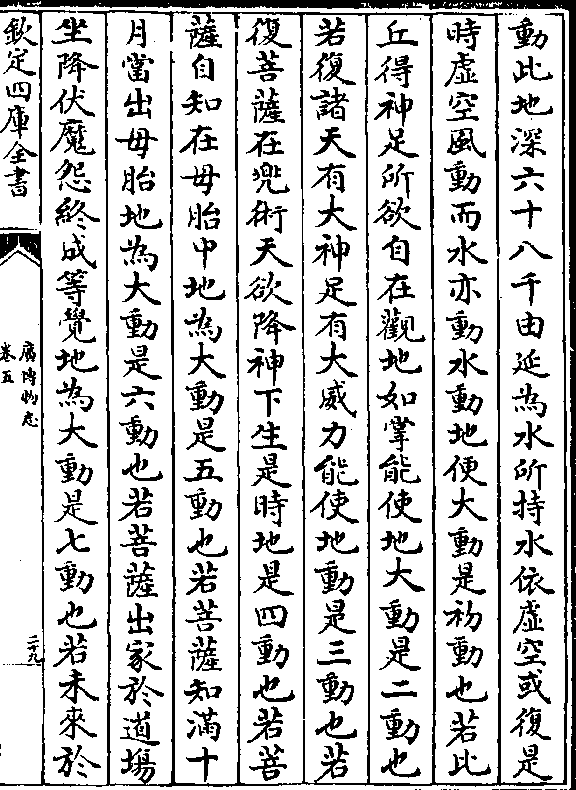 動此地深六十八千由延為水所持水依虛空或復是
時虛空風動而水亦動水動地便大動是初動也若比
丘得神足所欲自在觀地如掌能使地大動是二動也
若復諸天有大神足有大威力能使地動是三動也若
復菩薩在兜術天欲降神下生是時地是四動也若菩
薩自知在母胎中地為大動是五動也若菩薩知滿十
月當出母胎地為大動是六動也若菩薩出家於道場
坐降伏魔怨終成等覺地為大動是七動也若未來於
欽定四庫全書
廣博物志
卷五
二十九